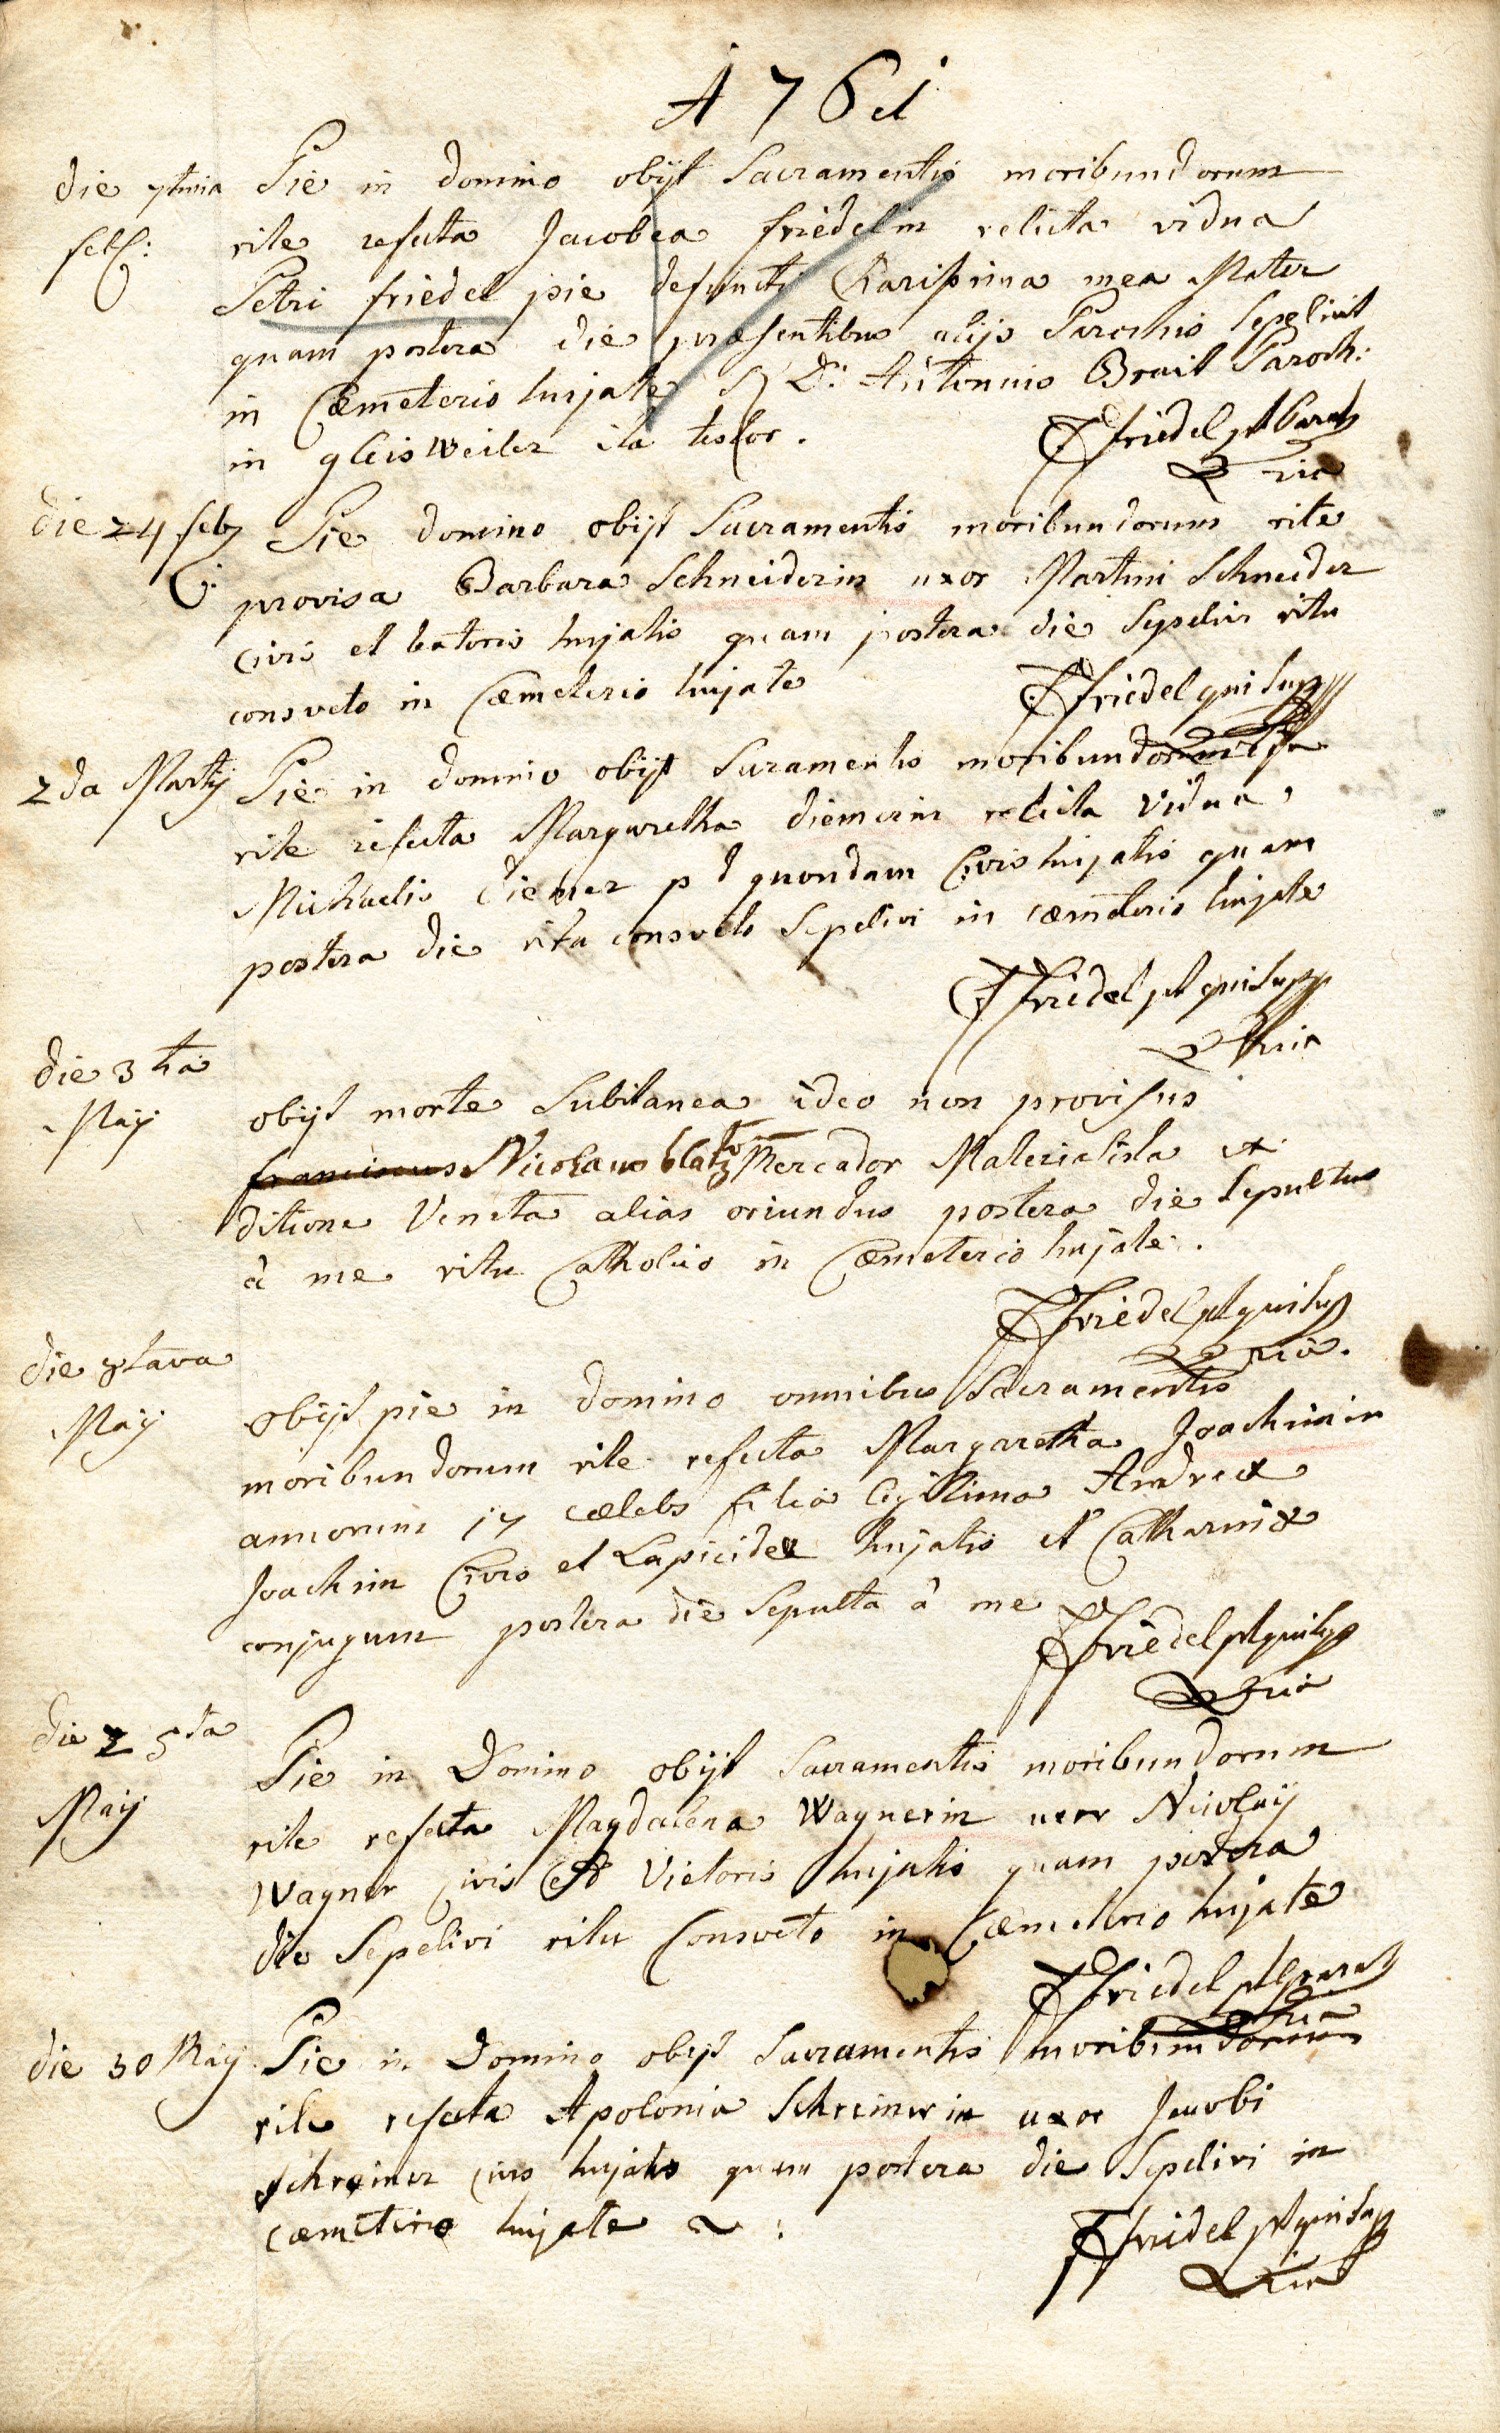 1761
die 7tima Pie in domino obijt Sacramentis moribundorum
feb: rite refecta Jacobea friedelin relicta vidua
Petri friedel pie defuncti Charissima mea Mater
quam postera die praesentibus alijs Parochis Sepelivit
in Cœmeterio hujate D: Antonius Brait Paroch:
in gleisweiler ita testor.
Friedel pt Paroch
die 24 feb Pie domino obijt Sacramentis moribundorum rite
provisa Barbara Schneiderin uxor Martini Schneider
civis et hujatis quam postera die Sepelivi ritu
consveto in Cæmeterio hujate
Friedel qui sup
2da Martij Pie in domino obijt Sacramentis moribundorum
rite refecta Margaretha diemerin relicta Vidua
Michaelis diemer p d quondam Civis hujatis quam
postera die ritu consveto Sepelivi in cæmeterio hujate
Friedel pt qui supp
die 3tia
Maij obijt morte Subitanea ideo non provisus
franciscus Nicolaus blatz Mercador Materialista ex
ditione Veneta alias oriundus postera die Sepultus
à me ritu Catholico in Cæmeterio hujate.
Friedel pt qui sup
die 8tava
Maij obijt pie in domino omnibus Sacramentis
moribundorum rite refecta Margaretha Joachimin
annorum 17 cælebs filia legitima Andreæ
Joachim Civis et Lapicidæ hujatis et Catharinæ
conjugum postera die Sepulta à me
Friedel pt qui sup
die 25ta
Maij Pie in Domino obijt Sacramentis moribundorum
rite refecta Magdalena Wagnerin uxor Nicolaij
Wagner civis et Vietoris hujatis quam postera
die Sepelivi ritu Consveto in Cæmeterio hujate
Friedel pt paroch
die 30 Maij Pie in Domino obijt Sacramentis moribundorum
rite refecta Apolonia Schreinerin uxor Jacobi
schreiner civis hujatis quam postera die Sepelivi in
cæmeterio hujate
Friedel pt qui sup